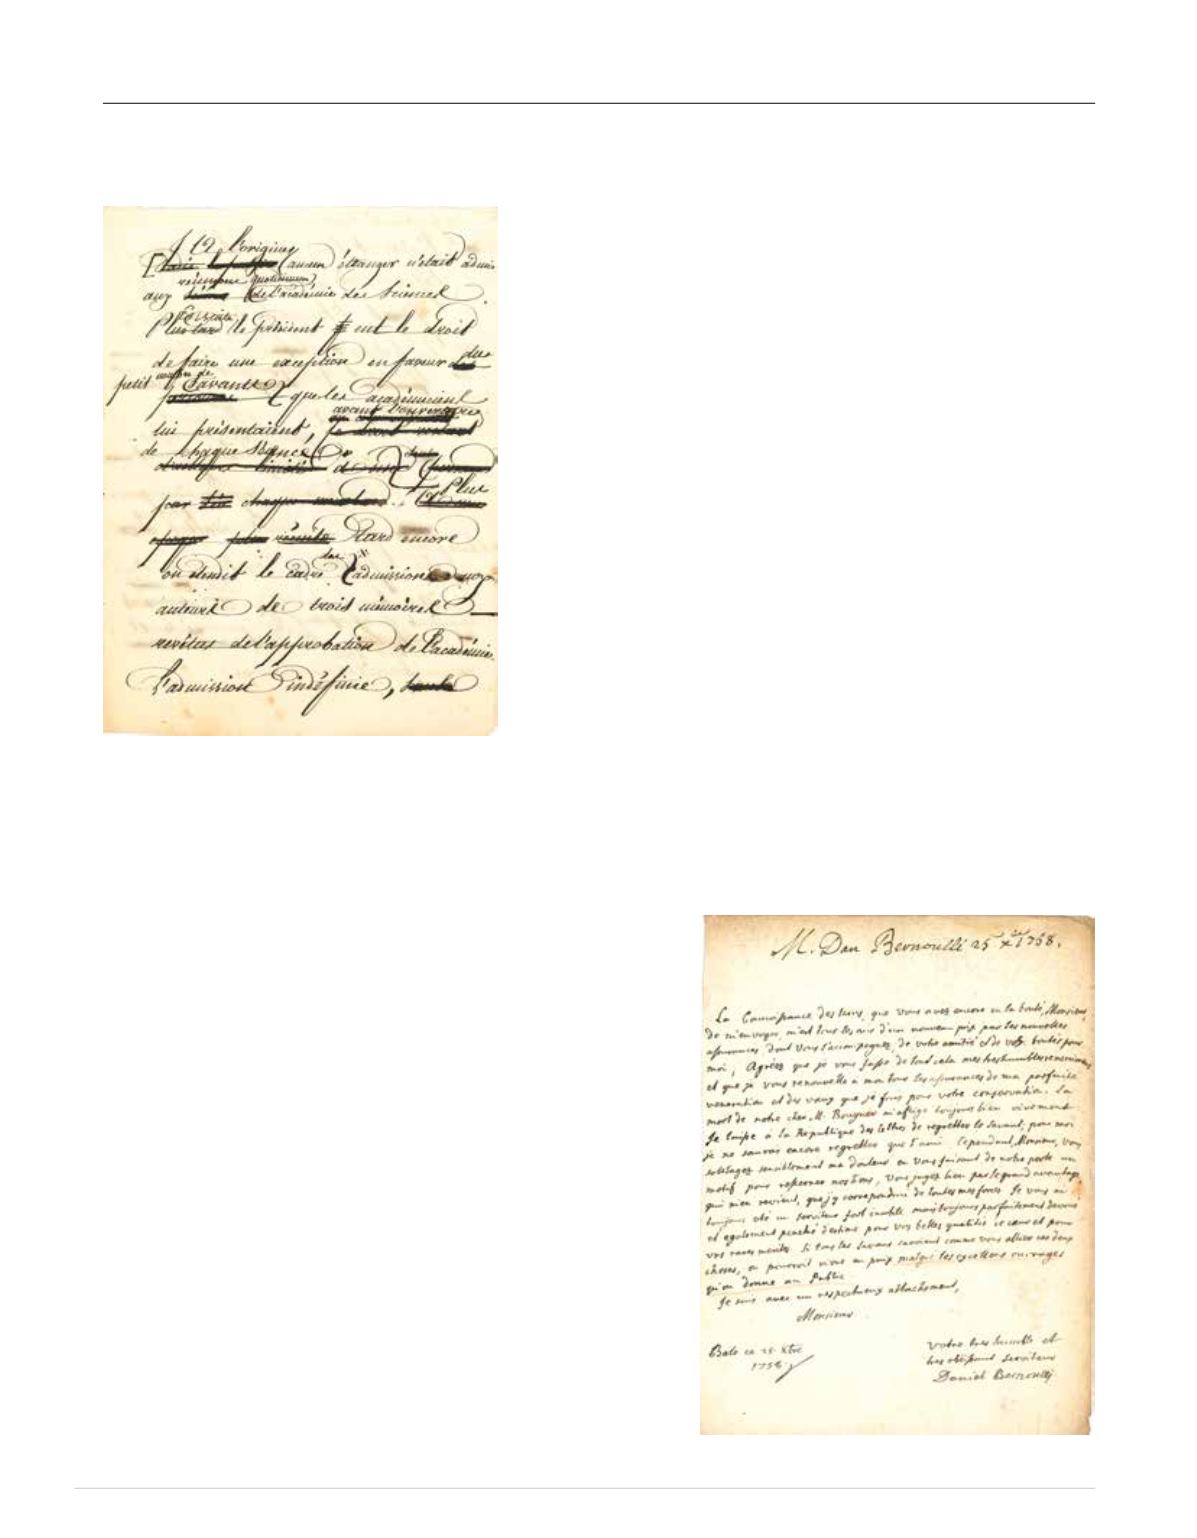 l'origine
aucun étranger n'était admis
aux quotidiennes de l'académie des Sciences
Plus tard le président eut le droit
de faire une exception en faveur du
petit nombre de
Savants que les académiciens
avant l'ouverture
lui présentaient,
de chaque Séance
Plus
par
tard encore
on étendit le cadre des admissions aux
auteurs de trois mémoires
revêtus de l'approbation de l'académie.
L'admission indéfinie,
M. Dan Bernoulli 25 Xbre 1758.
La Connoissance des tems, que vous avez encore eu la bonté, Monsieur,
de m'envoyer, m'est tous les ans d'un nouveau prix par les nouvelles
assurances, dont vous l'accompagnez, de votre amitié et de vos bontés pour
moi; Agréez que je vous fasse de tout cela mes tres humbles remerciemens
et que je vous renouvelle à mon tour les assurances de ma parfaite
veneration et des vœux que je fais pour votre conservation. La
mort de notre cher M. Bouguer m'afflige toujours bien vivement.
Je laisse à la Republique des lettres de regretter le savant; pour moi
je ne saurois encore regretter que l'ami. Cependant, Monsieur, vous
soulagez sensiblement ma douleur en vous faisant de notre perte un
motif pour resserrer nos liens, vous jugez bien par le grand avantage,
qui m'en revient, que j'y correspondrai de toutes mes forces. Je vous ai
toujours été un serviteur fort inutile mais toujours parfaitement devoué
et egalement penetré d'estime pour vos belles qualités de cœur et pour
vos rares merites. Si tous les savans savoient comme vous allier ces deux
choses, on pourroit vivre en paix malgré les excellens ouvrages
qu'on donne au Public.
Je suis avec un respectueux attachement,
Monsieur
Bale ce 25 Xbre
1758
Votre tres humble et
tres obeissant serviteur
Daniel Bernoulli